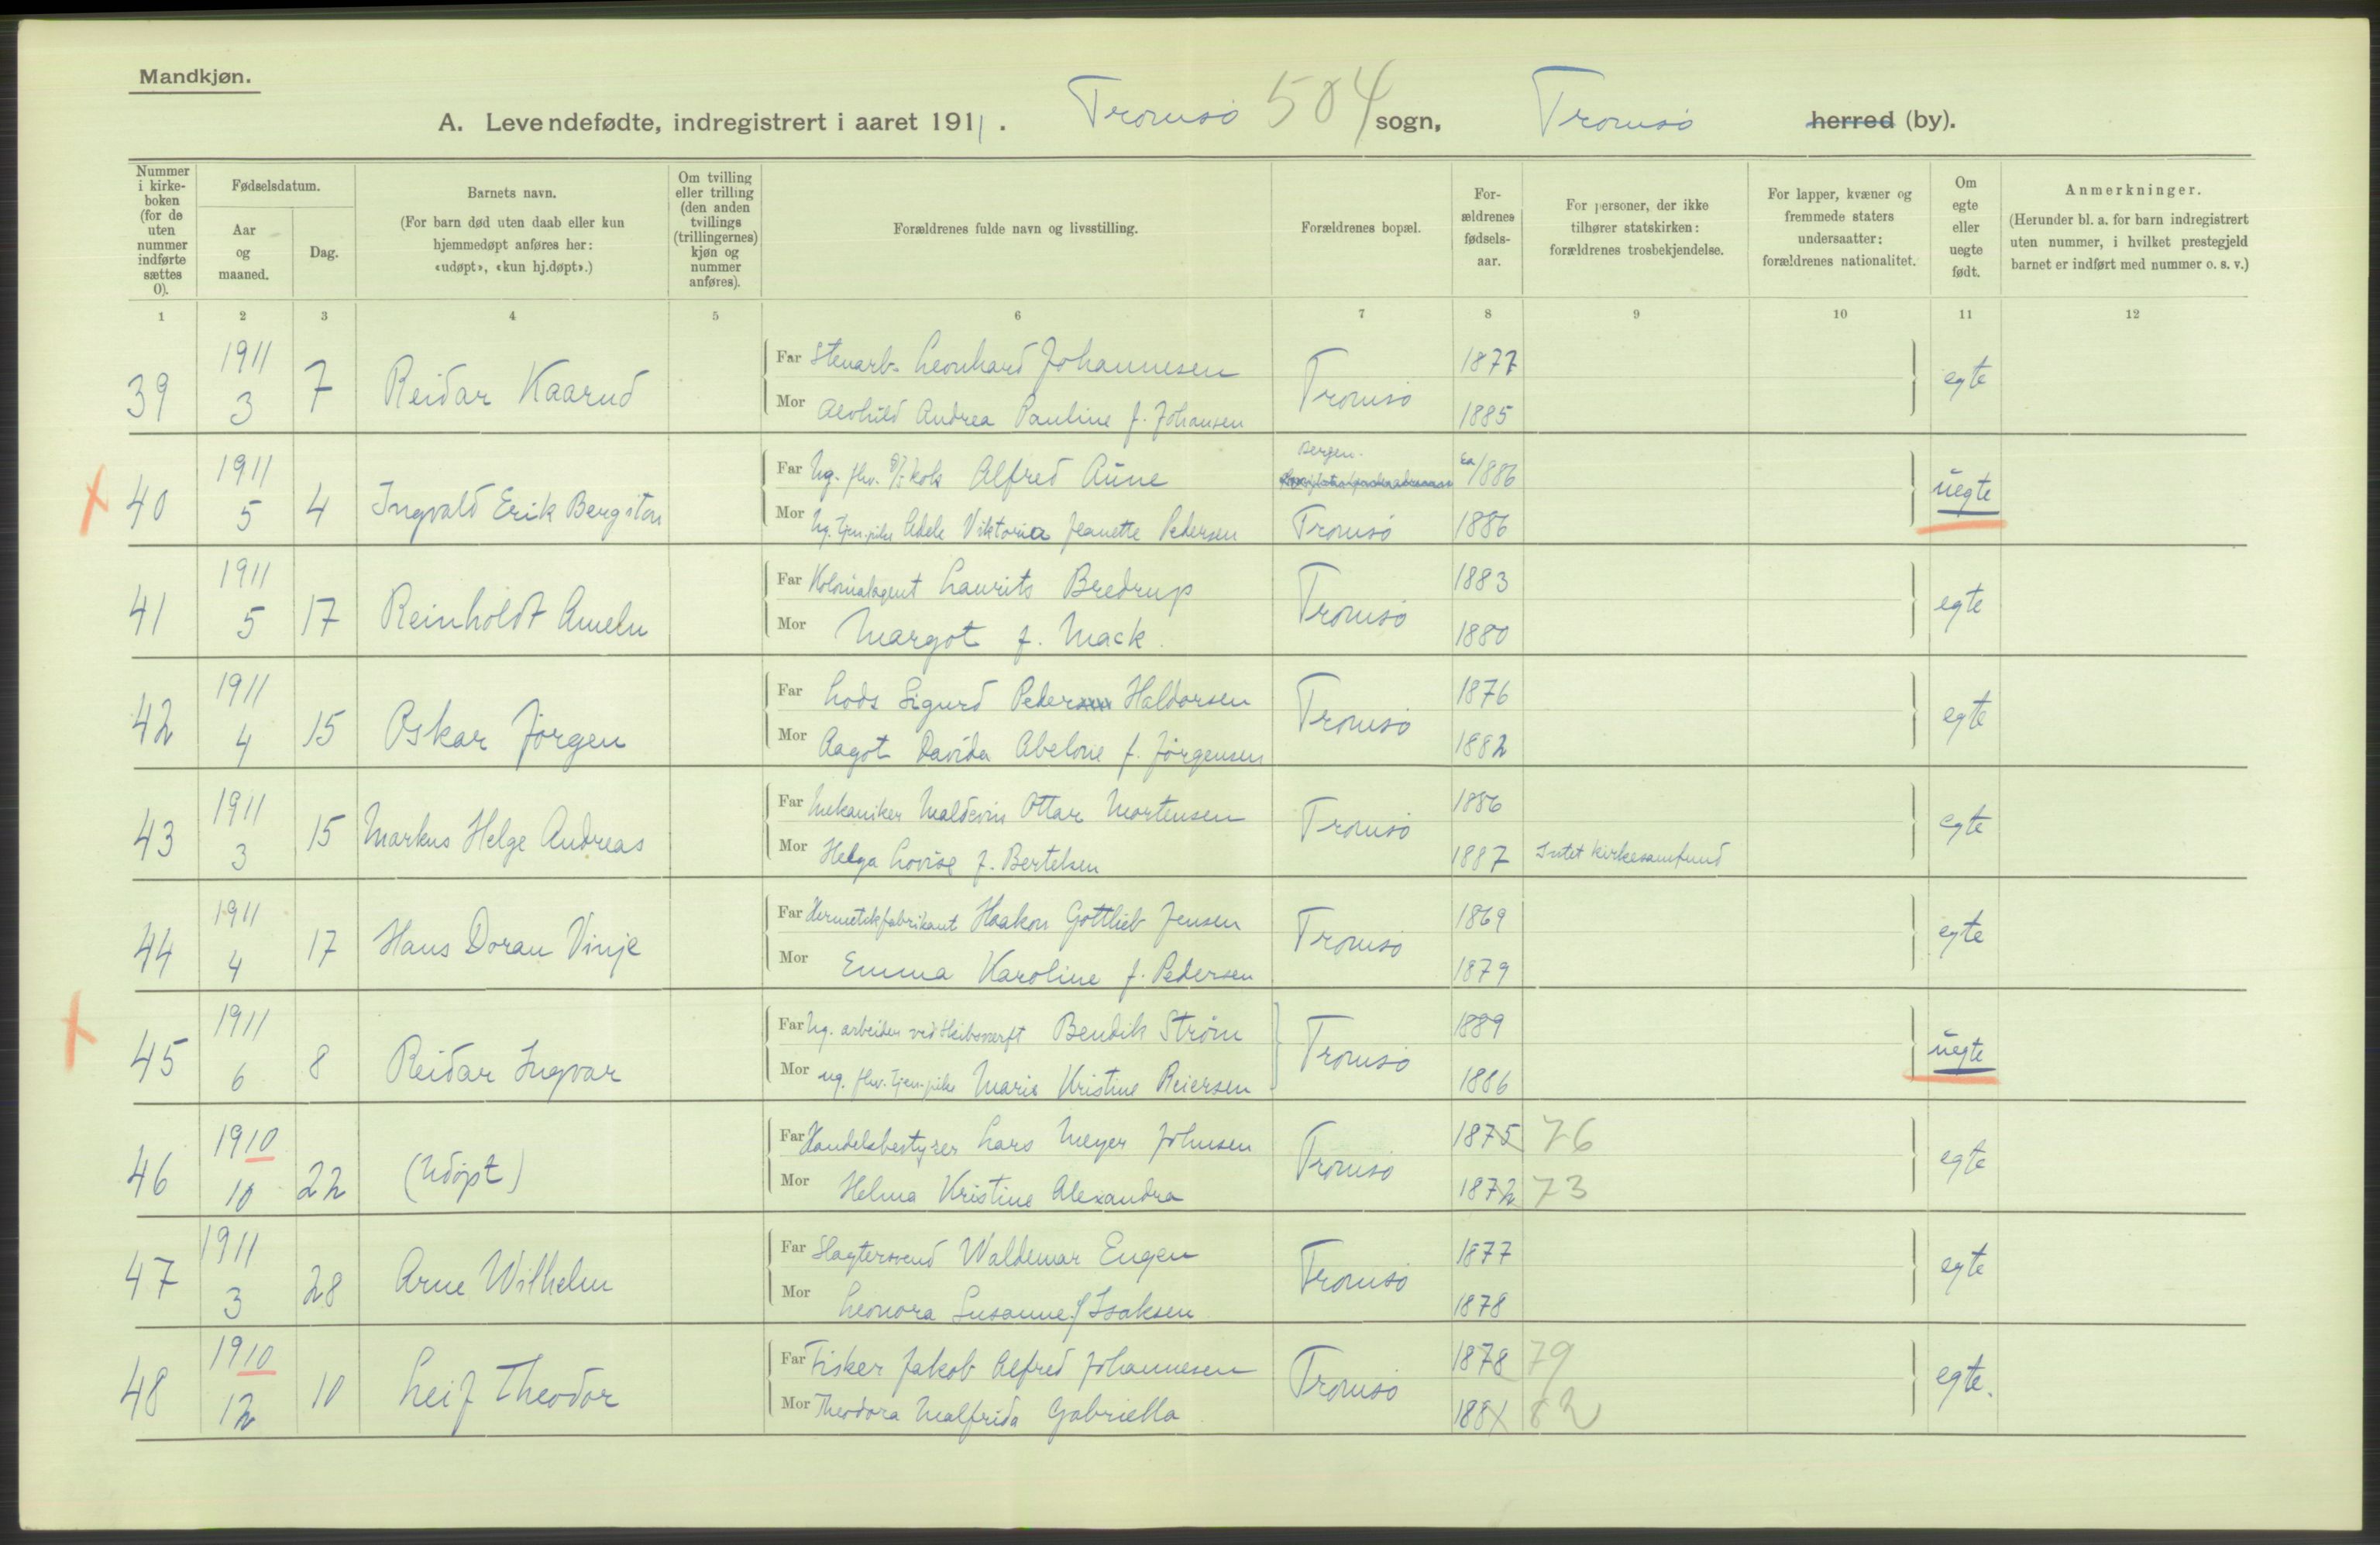 Mandkjøn.
A. Levendefødte, indregistrert i aaret 1911. Tromsø 504 sogn, Tromsø herred (by).
Nummer i kirke-boken (for de uten nummer indførte sættes 0).
Fødselsdatum.
Aar og maaned.
Dag.
Barnets navn.
(For barn død uten daab eller kun hjemmedøpt anføres her: «udøpt», «kun hj.døpt».)
Om tvilling eller trilling (den anden tvillings (trillingernes) kjøn og nummer anføres).
Forældrenes fulde navn og livsstilling.
Forældrenes bopæl.
For-ældrenes fødsels-aar.
For personer, der ikke tilhører statskirken: forældrenes trosbekjendelse.
For lapper, kvæner og fremmede staters undersaatter: forældrenes nationalitet.
Om egte eller uegte født.
Anmerkninger.
(Herunder bl. a. for barn indregistrert uten nummer, i hvilket prestegjeld barnet er indført med nummer o. s. v.)
1 2 3 4 5 6 7 8 9 10 11 12
39 1911 3 7 Reidar Kaarud
Far Stuarb. Leonhard Johannesen Tromsø 1877 egte
Mor Alvhild Andrea Pauline f. Johansen 1885
40 1911 5 4 Ingvald Erik Bergiton
Far Ug. fhv. Alfred Aune Bergen. ca 1886 uegte
Mor Ug. tjen.pike Adele Viktoria Jeanette Pedersen Tromsø 1886
41 1911 5 17 Reinholdt Ameln
Far Kolonialagent Laurits Bredrup Tromsø 1883 egte
Mor Margot f. Mack. 1880
42 1911 4 15 Oskar Jørgen
Far Lods Sigurd Peder Haldorsen Tromsø 1876 egte
Mor Aagot Davida Abelone f. Jørgensen 1882
43 1911 3 15 Markus Helge Andreas
Far Mekaniker Ottar Mortensen Tromsø 1886 egte
Mor Helga Lovise f. Bertelsen 1887 Intet kirkesamfund
44 1911 4 17 Hans Doran Vinje
Far Hermetikfabrikant Haakon Gottlieb Jensen Tromsø 1869 egte
Mor Emma Karoline f. Pedersen 1879
45 1911 6 8 Reidar Ingvar
Far Ug. arbeider ved Skibsværft Bendik Strøm Tromsø 1889 uegte
Mor ug. fhv. tjen.pike Marie Kristine Reiersen 1886
46 1910 10 22 (Udøpt)
Far Handelsbestyrer Lars Meyer Johnsen Tromsø 1875 76 egte
Mor Helma Kristine Alexandra 1872 73
47 1911 3 28 Arne Wilhelm
Far Slagtersvend Waldemar Eugen Tromsø 1877 egte
Mor Leonora Susanne f Isaksen 1878
48 1910 12 10 Leif Theodor
Far Fisker Jakob Alfred Johannesen Tromsø 1878 79 egte.
Mor Theodora Malfrida Gabriella 1881 82